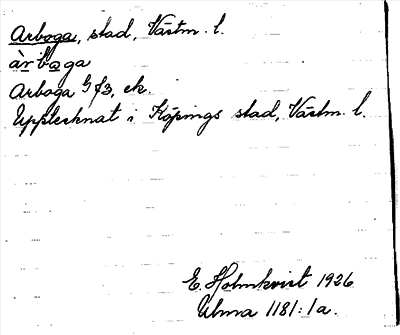 Arboga, stad, Västm. l.
àrboga
Arboga
Upptecknat i Köpings stad, Västm. l.
E. Holmkvist 1926
Ulma 1181:1a.